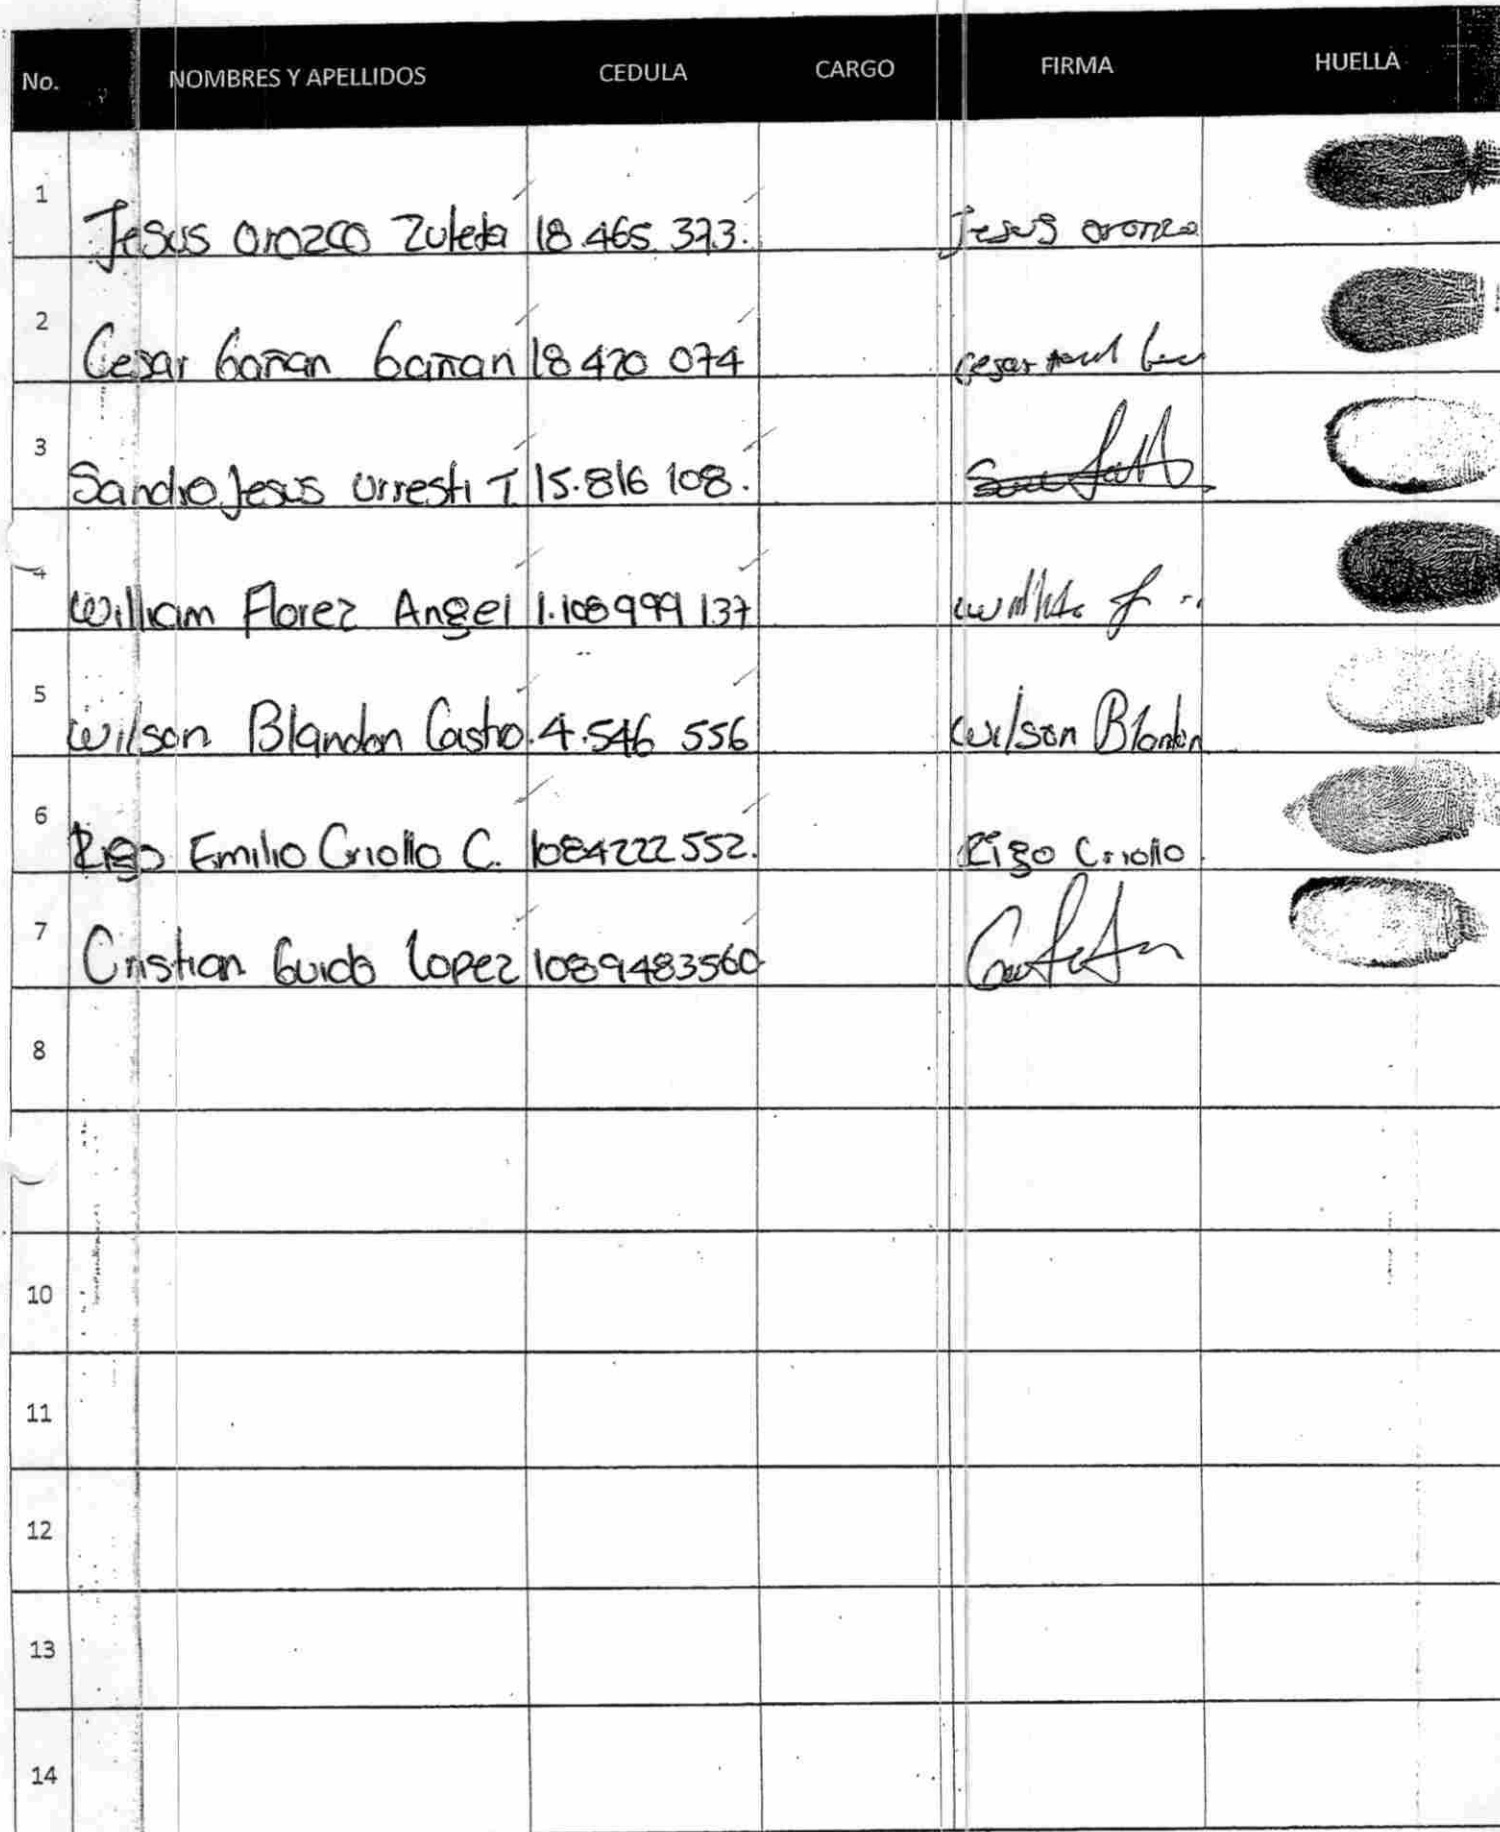 No. NOMBRES Y APELLIDOS CEDULA CARGO FIRMA HUELLA
1 Jesus Orozco Zuleta 18.465.373. Jesus Orozco
2 Cesar Gañan Gañan 18 420 074 Cesar
3 Sandro Jesus Urresti T. 15.816 108.
4 William Florez Angel 1.108999 137
5 Wilson Blandon Castro. 4.546 556 Wilson Blandon
6 Rigo Emilio Criollo C. 1084222552. Rigo Criollo.
7 Cristian Guido Lopez 1089483560
8
10
11
12
13
14